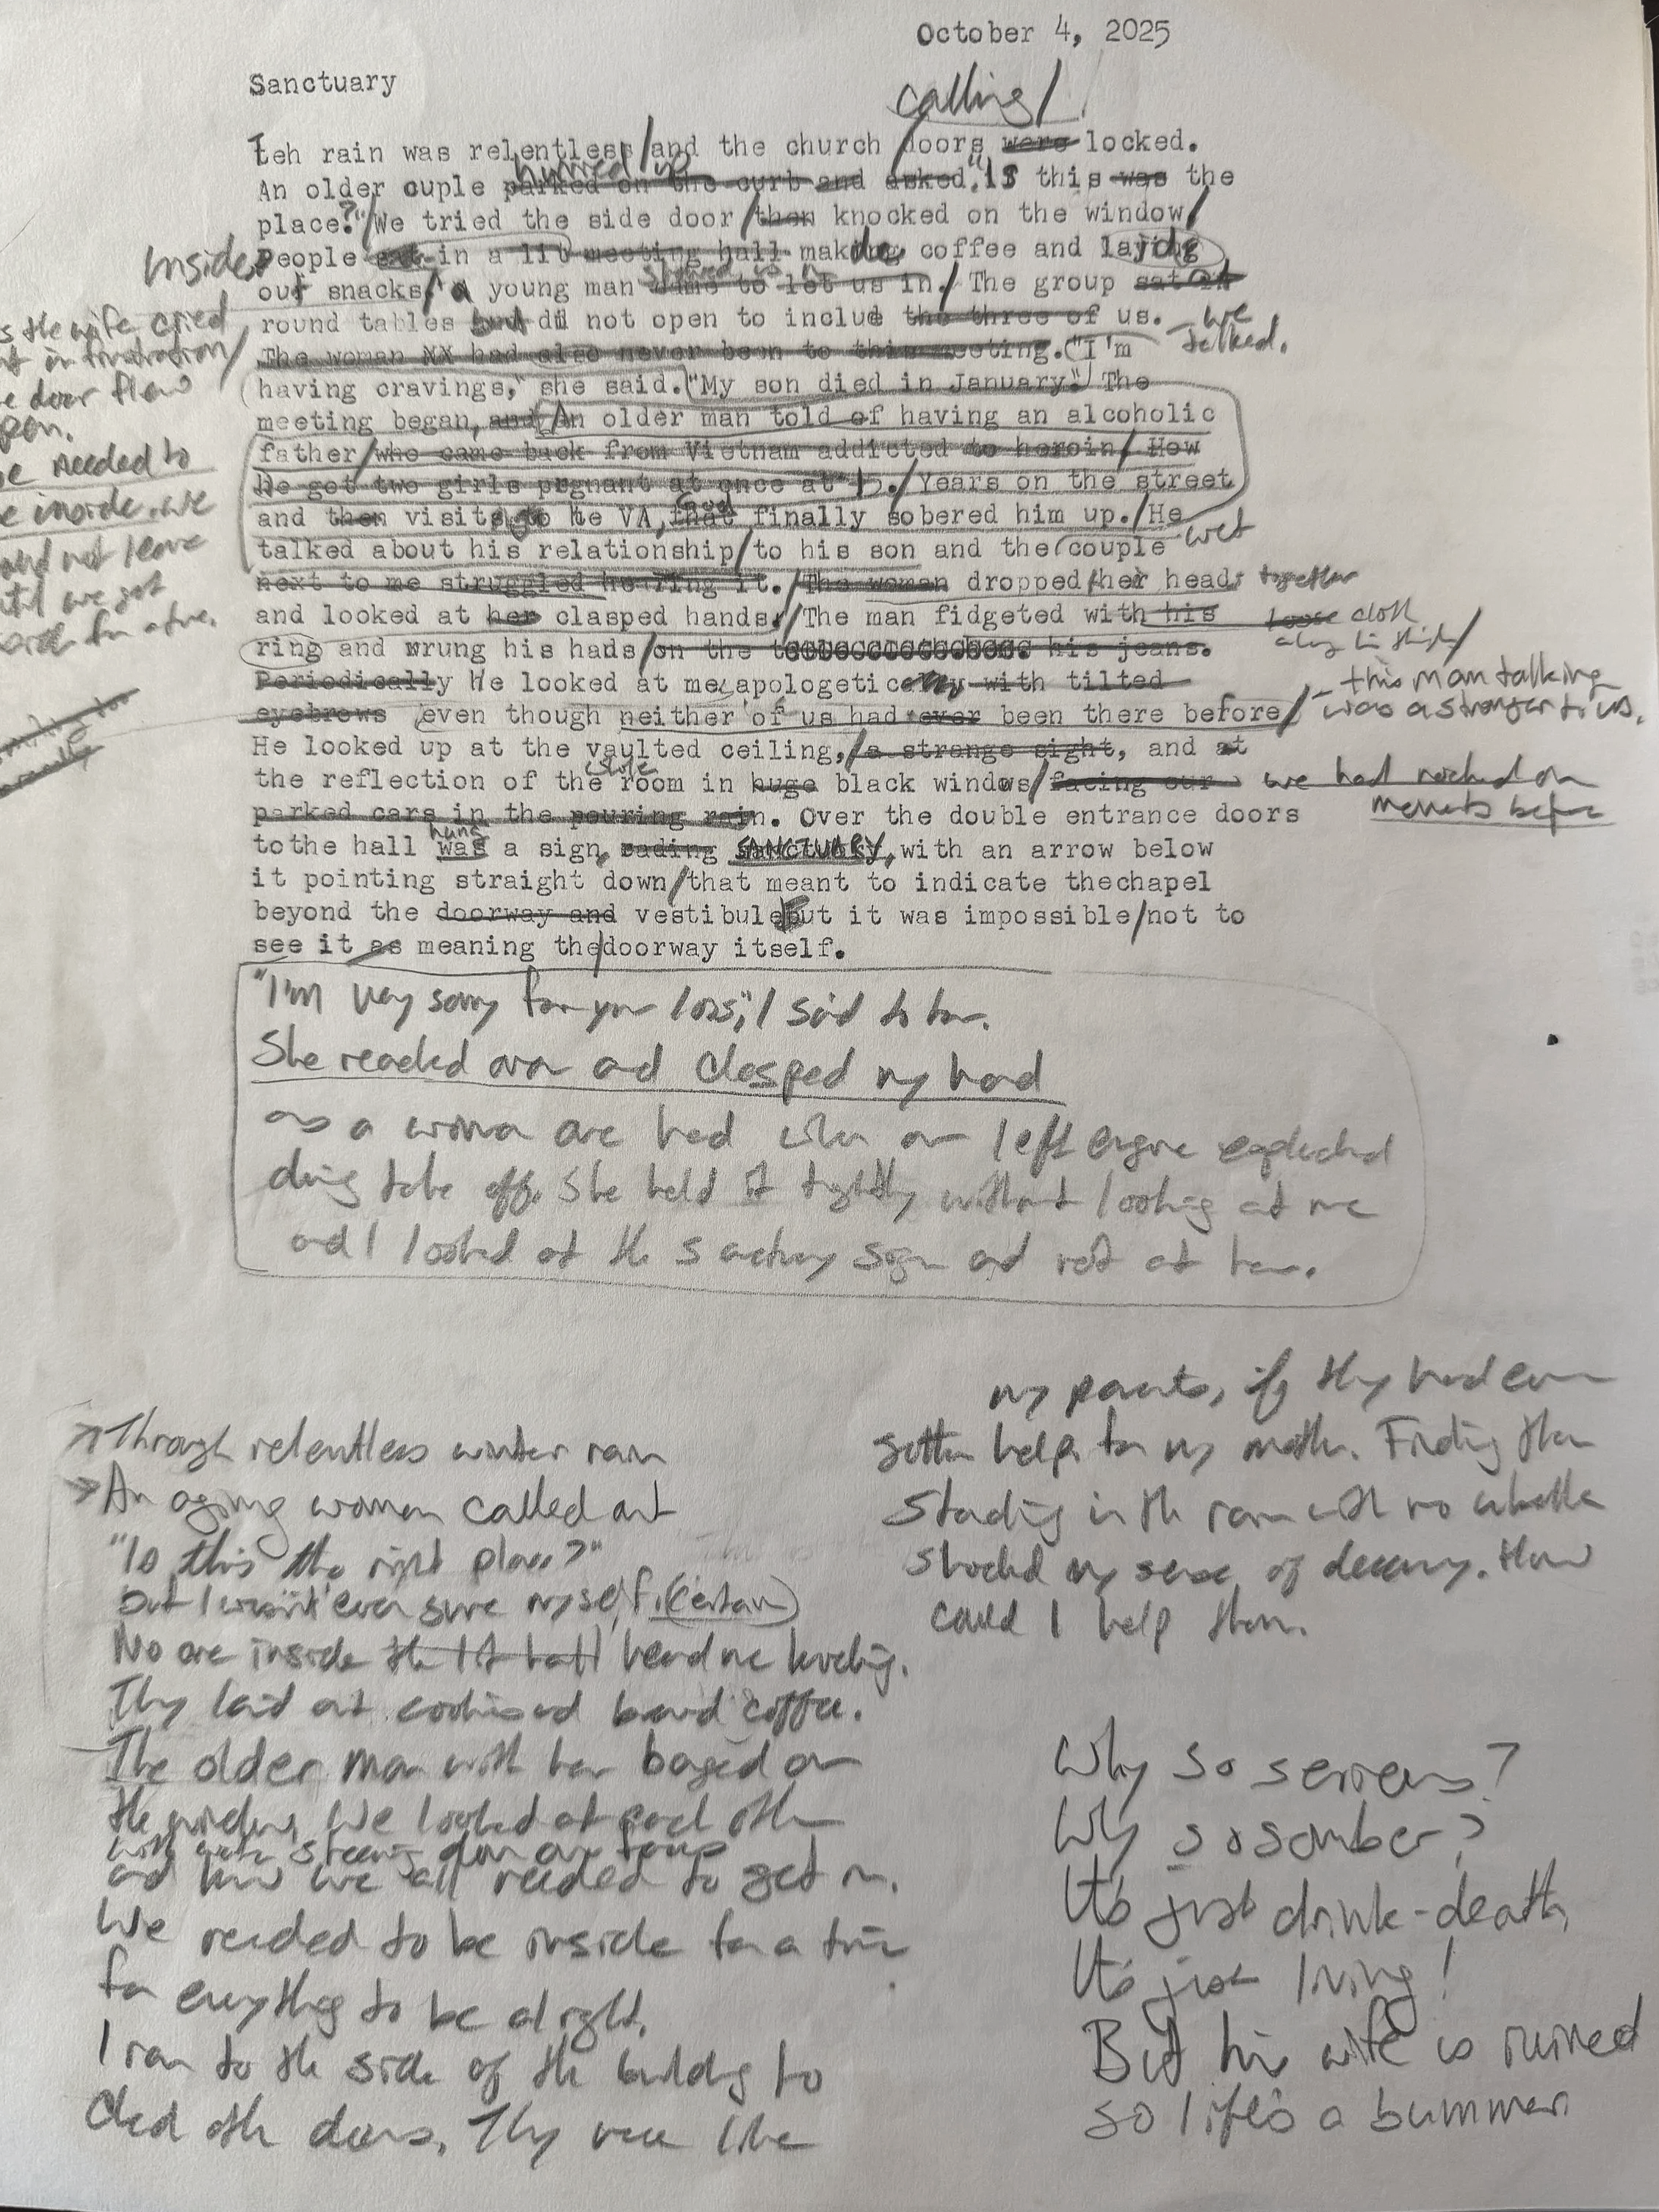 October 4, 2025
Sanctuary
calling/
teh rain was relentless/and the church doors were locked.
hurried up
An older cuple parked on the curb and asked, "Is this was the
place?"/We tried the side door/then knocked on the window/
Inside,
People sat in a lit meeting hall making coffee and laying
out snacks/a young man came to let us in./The group sat at
round tables but did not open to include the three of us. we
talked.
The woman XX had also never been to this meeting. "I'm
having cravings," she said. "My son died in January." The
meeting began, and An older man told of having an alcoholic
father/who came back from Vietnam addicted to heroin/How
he got two girls prgnant at once at 15./Years on the street
and then visits to he VA, that finally sobered him up./He
talked about his relationship/to his son and the couple wet
next to me struggled hearing it./The woman dropped her head together
and looked at her clasped hands/The man fidgeted with his loose cloth
along his thigh/
ring and wrung his hads/on the his jeans.
Periodically He looked at me apologetically with tilted
eyebrows even though neither of us had ever been there before/
- this man talking
was a stranger to us.
He looked up at the vaulted ceiling,/a strange sight, and at
the reflection of the room in huge black windows/facing our
we had rocked on
moments before
parked cars in the pouring rain. Over the double entrance doors
hung
tothe hall was a sign, rading SANCTUARY, with an arrow below
it pointing straight down/that meant to indicate thechapel
beyond the doorway and vestibule but it was impossible/not to
see it as meaning the/doorway itself.
as the wife cried
out in frustration/
the door flew
open.
We needed to
be inside. we
would not leave
until we got
inside for a time.
"I'm very sorry for your loss," I said to her.
She reached over and clasped my hand
as a woman once had when our left engine exploded
during take off. She held it tightly without looking at me
and I looked at the sanctuary sign and not at her.
→ Through relentless winter rain
→ An aging woman called out
"Is this the right place?"
but I wasn't even sure myself. (certain)
No one inside the lit hall heard me knocking.
They laid out cookies and brewed coffee.
The older man with her banged on
the window. We looked at each other
with water streaming down our faces
and knew we all needed to get in.
We needed to be inside for a time
for everything to be alright.
I ran to the side of the building to
check other doors. They were like
my parents, if they had ever
gotten help for my mother. Finding them
standing in the rain with no umbrella
shocked my sense of decency. How
could I help them.
Why so serious?
Why so somber?
It's just drink-death,
It's just living!
But his wife is ruined
so life's a bummer